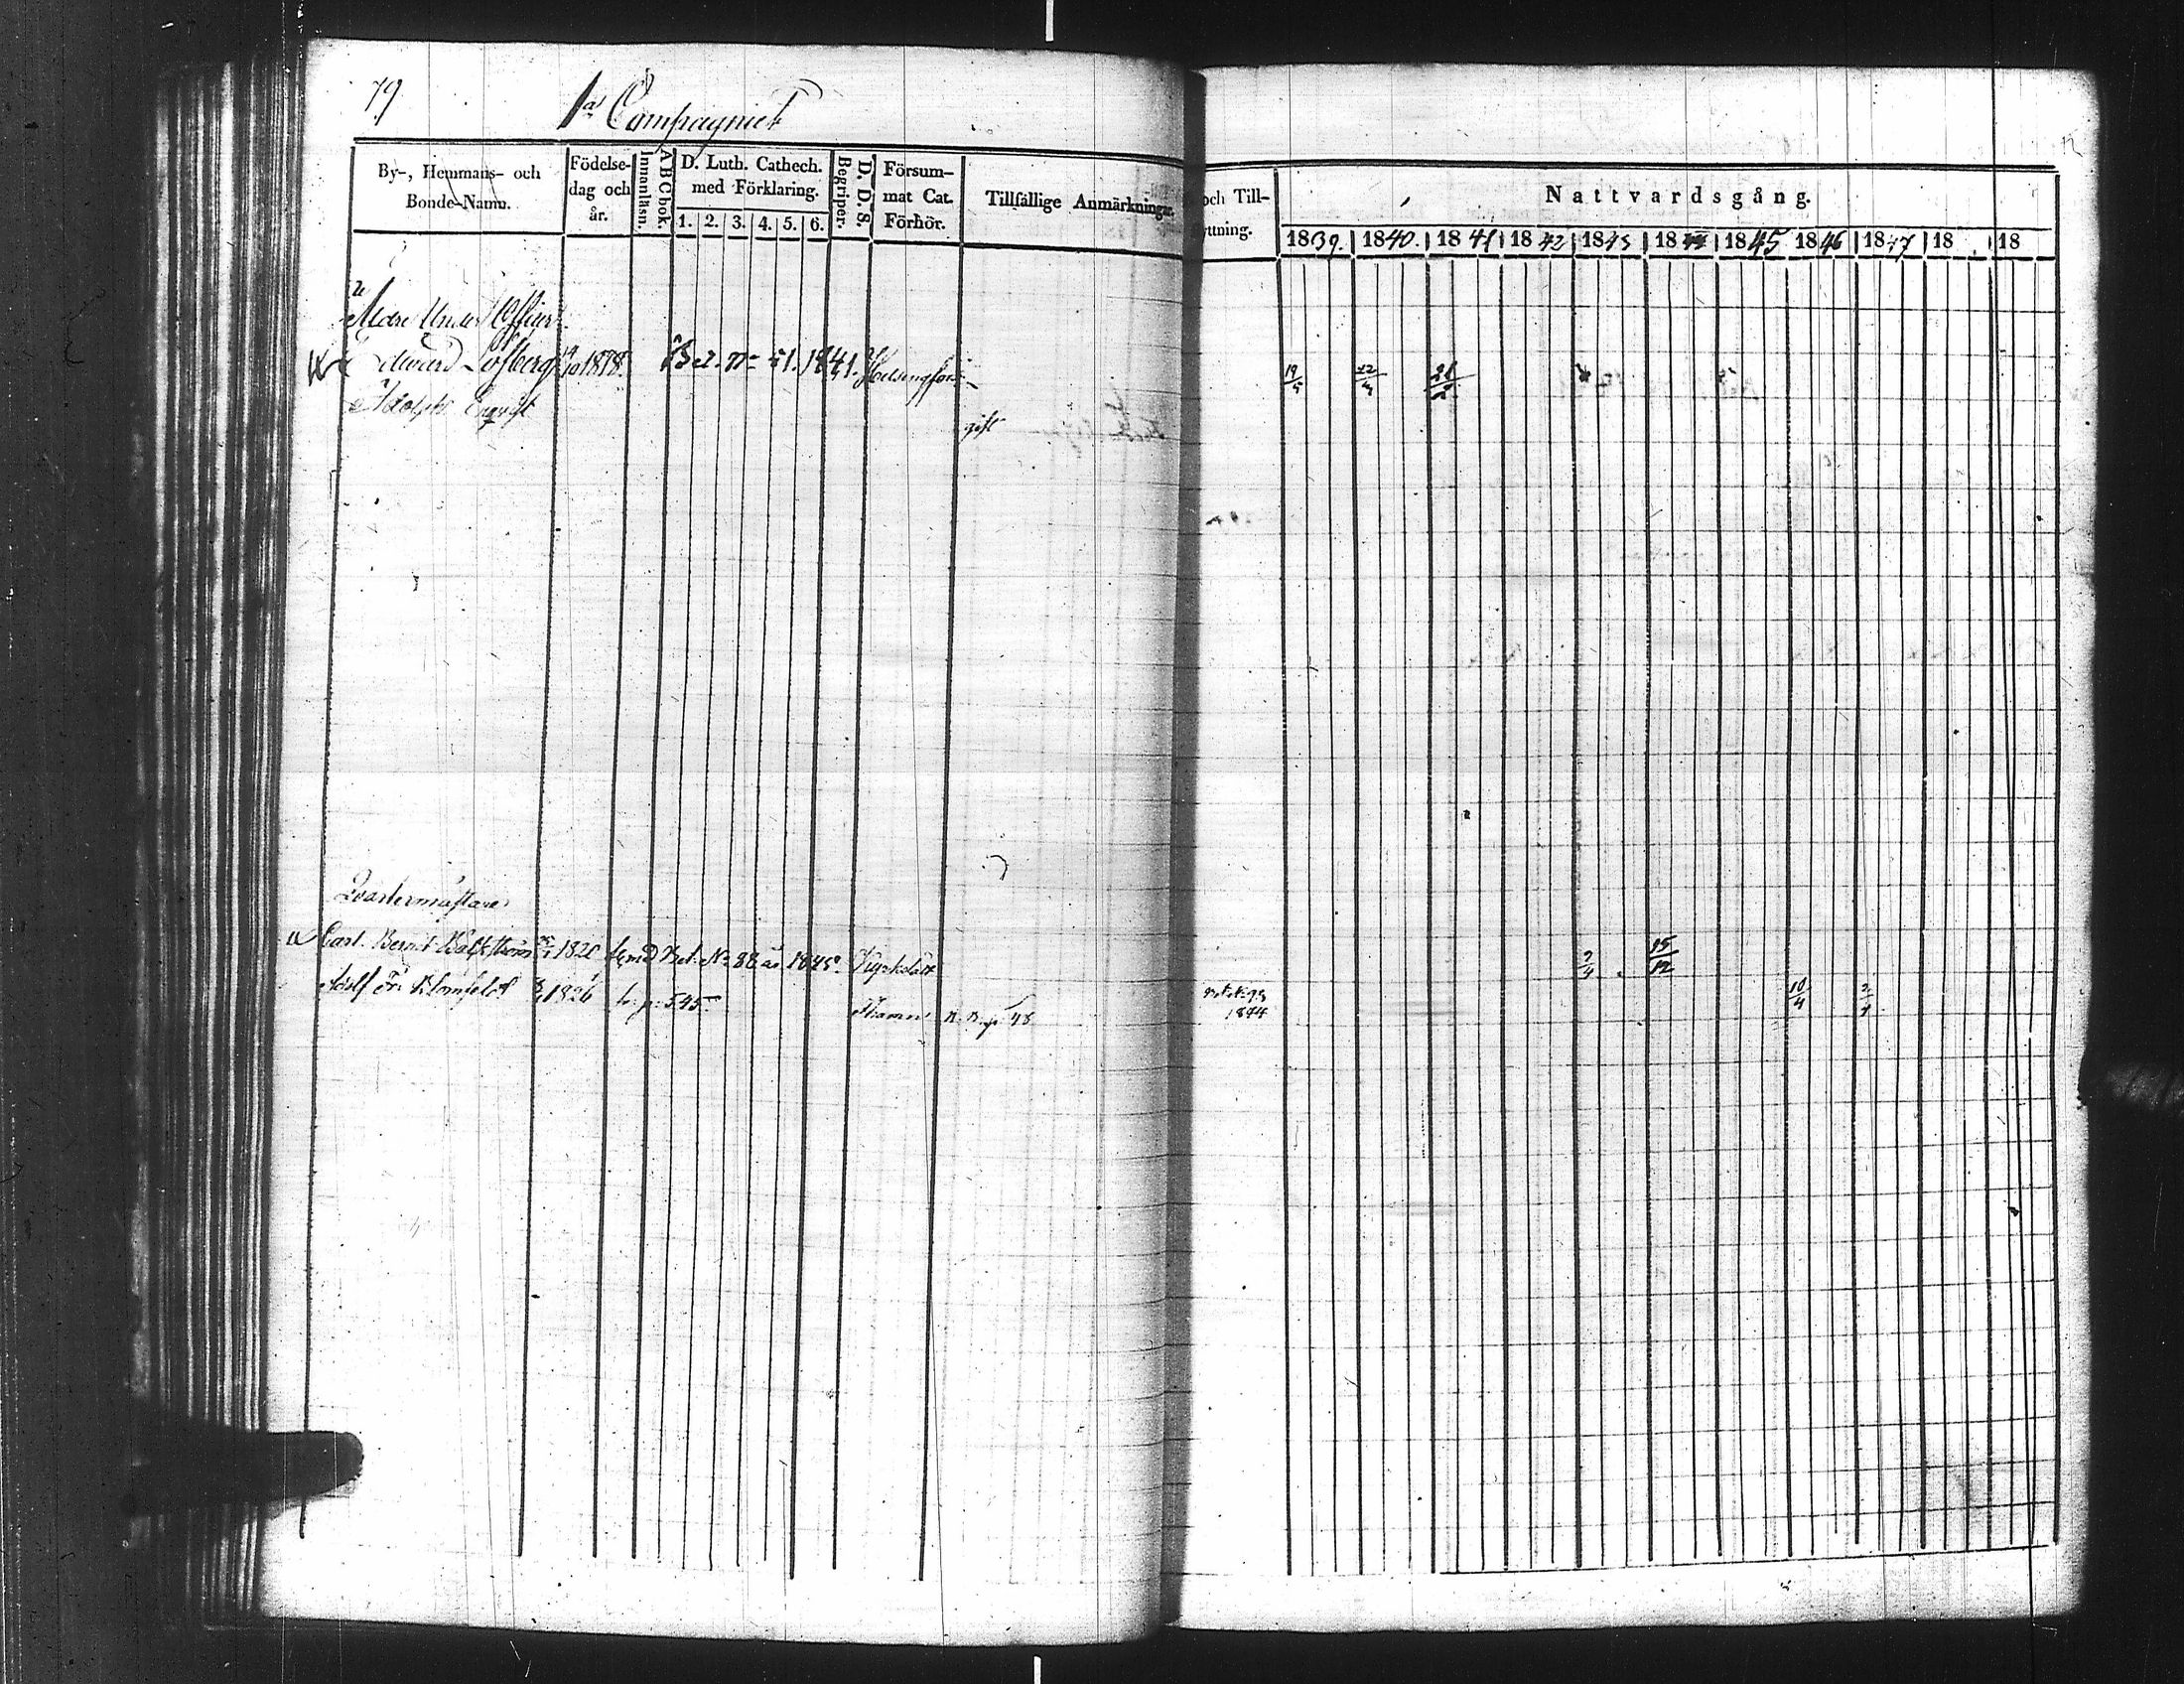 79
1a Compagniet
By-, Hemmans- och
Bonde-Namn.
Födelse-
dag och
år.
Innanläsn.
ABC bok.
D. Luth. Cathech.
med Förklaring.
1. 2. 3. 4. 5. 6.
Begriper.
D. D. S.
Försum-
mat Cat.
Förhör.
Tillfällige Anmärkningar.
och Till-
yttning.
Nattvardsgång.
1839. 1840. 1841 1842 1843 1844 1845 1846 1847 18 18
Under Officer
Edward Löfberg 1818. Bet. 51. 1841. Helsingfors 19/5 12/4 21/2
Adolph Engvist gift
Qvartermästare
Carl Bernt 1820 Bet. No 88 1845. Kyrkslätt 2/4 15/12
Adolf Fr. Blomfelt 1826 fr. p. 545 p. 48 1844 10/4 2/4